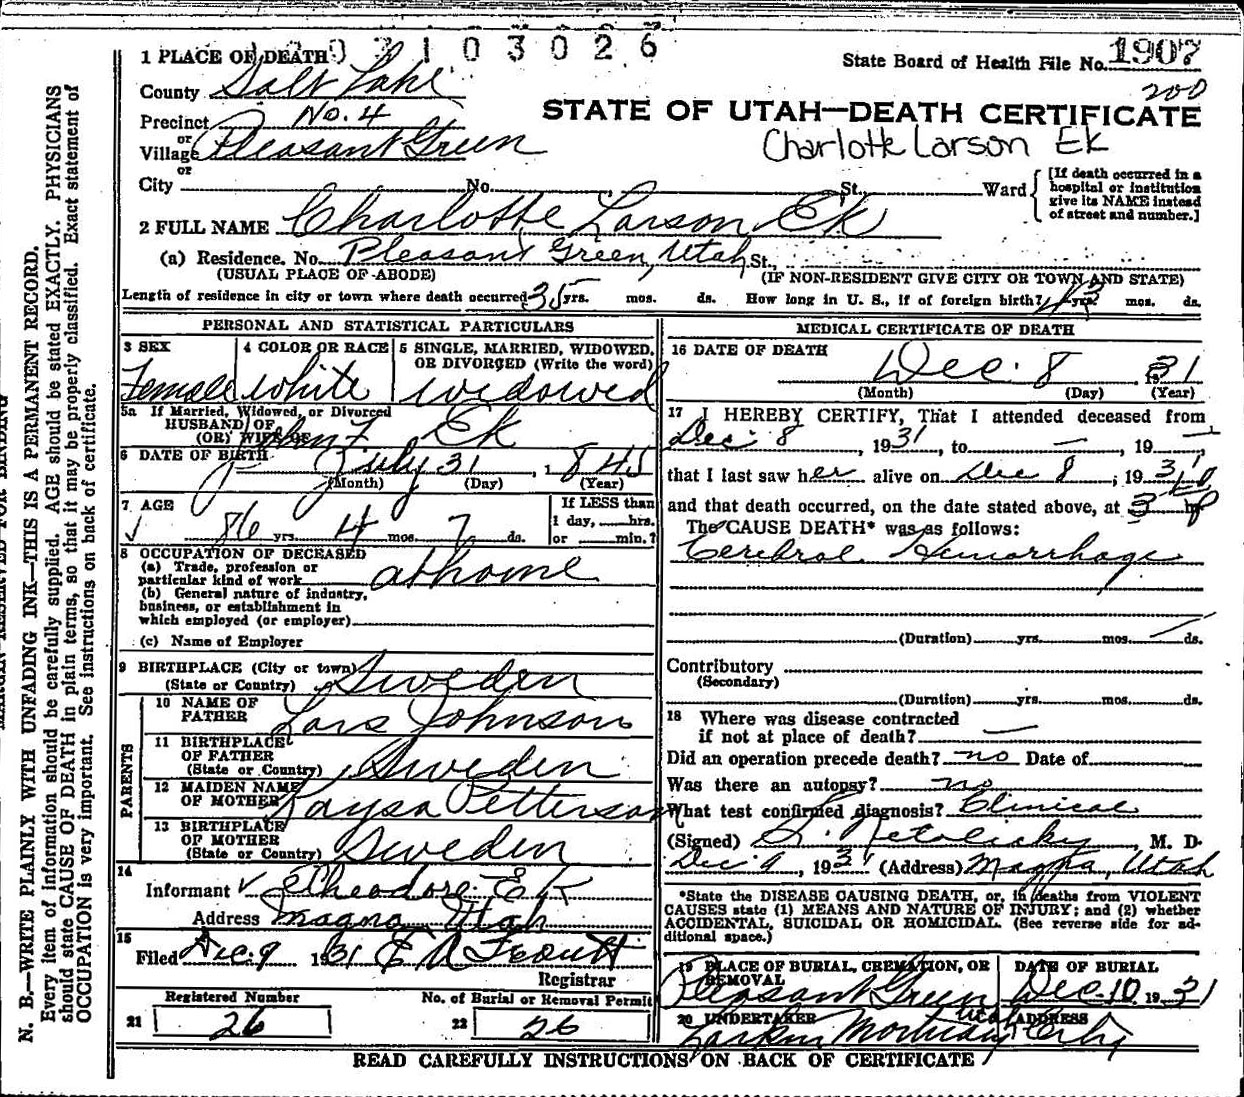 3026
1 PLACE OF DEATH
State Board of Health File No. 1907
200
County Salt Lake
STATE OF UTAH—DEATH CERTIFICATE
Precinct No. 4
or
Village Pleasant Green
Charlotte Larson Ek
or
City No. St., Ward
[If death occurred in a
hospital or institution
give its NAME instead
of street and number.]
2 FULL NAME Charlotte Larson Ek
(a) Residence. No. Pleasant Green, Utah St.,
(USUAL PLACE OF ABODE) (IF NON-RESIDENT GIVE CITY OR TOWN AND STATE)
Length of residence in city or town where death occurred 35 yrs. mos. ds. How long in U. S., if of foreign birth? 43 yrs. mos. ds.
PERSONAL AND STATISTICAL PARTICULARS
3 SEX 4 COLOR OR RACE 5 SINGLE, MARRIED, WIDOWED,
OR DIVORCED (Write the word)
Female white widowed
5a If Married, Widowed, or Divorced
HUSBAND OF
(OR) WIFE OF John F Ek
6 DATE OF BIRTH July 31, 1845
(Month) (Day) (Year)
7 AGE If LESS than
1 day, hrs.
86 yrs. 4 mos. 7 ds. or min.?
8 OCCUPATION OF DECEASED
(a) Trade, profession or
particular kind of work at home
(b) General nature of industry,
business, or establishment in
which employed (or employer)
(c) Name of Employer
9 BIRTHPLACE (City or town)
(State or Country) Sweden
PARENTS
10 NAME OF
FATHER Lars Johnson
11 BIRTHPLACE
OF FATHER
(State or Country) Sweden
12 MAIDEN NAME
OF MOTHER Kaysa Petterson
13 BIRTHPLACE
OF MOTHER
(State or Country) Sweden
14
Informant Theodore Ek
Address Magna Utah
15
Filed Dec. 9 1931
Registrar
Registered Number No. of Burial or Removal Permit
21 26 22 26
MEDICAL CERTIFICATE OF DEATH
16 DATE OF DEATH
Dec. 8 31
(Month) (Day) (Year)
17 I HEREBY CERTIFY, That I attended deceased from
Dec 8, 1931, to —, 19 —
that I last saw her alive on Dec 8, 1931,
and that death occurred, on the date stated above, at 3
The CAUSE DEATH* was as follows:
Cerebral Hemorrhage
(Duration) yrs. mos. ds.
Contributory
(Secondary)
(Duration) yrs. mos. ds.
18 Where was disease contracted
if not at place of death? —
Did an operation precede death? no Date of
Was there an autopsy? no
What test confirmed diagnosis? Clinical
(Signed) S. Netolicky, M. D.
Dec 9, 1931 (Address) Magna, Utah
*State the DISEASE CAUSING DEATH, or, in deaths from VIOLENT
CAUSES state (1) MEANS AND NATURE OF INJURY; and (2) whether
ACCIDENTAL, SUICIDAL OR HOMICIDAL. (See reverse side for ad-
ditional space.)
19 PLACE OF BURIAL, CREMATION, OR
REMOVAL
Pleasant Green Utah
DATE OF BURIAL
Dec. 10 1931
20 UNDERTAKER ADDRESS
Larkin Mortuary
READ CAREFULLY INSTRUCTIONS ON BACK OF CERTIFICATE
MARGIN RESERVED FOR BINDING
N. B.—WRITE PLAINLY WITH UNFADING INK—THIS IS A PERMANENT RECORD.
Every item of information should be carefully supplied. AGE should be stated EXACTLY. PHYSICIANS
should state CAUSE OF DEATH in plain terms, so that it may be properly classified. Exact statement of
OCCUPATION is very important. See instructions on back of certificate.